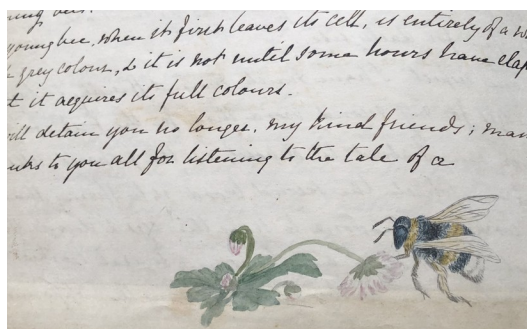 young bee, when it first leaves its cell, is entirely of a
grey colour, & it is not until some hours have
it acquires its full colours.
detain you no longer, my kind friends;
to you all for listening to the tale of a